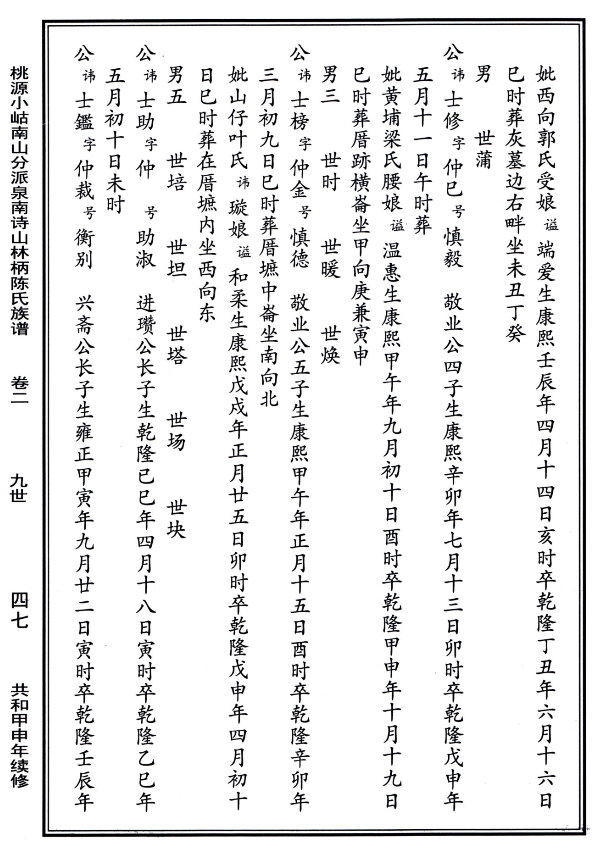 妣西向郭氏受娘谥端爱生康熙壬辰年四月十四日亥时卒乾隆丁丑年六月十六日
巳时葬灰墓边右畔坐未丑丁癸
男 世蒲
公讳士修字仲巳号慎毅 敬业公四子生康熙辛卯年七月十三日卯时卒乾隆戊申年
五月十一日午时葬
妣黄埔梁氏腰娘谥温惠生康熙甲午年九月初十日酉时卒乾隆甲申年十月十九日
巳时葬厝跡横崙坐甲向庚兼寅申
男三 世时 世暖 世焕
公讳士榜字仲金号慎德 敬业公五子生康熙甲午年正月十五日酉时卒乾隆辛卯年
三月初九日巳时葬厝墘中崙坐南向北
妣山仔叶氏讳璇娘谥和柔生康熙戊戌年正月廿五日卯时卒乾隆戊申年四月初十
日巳时葬在厝墘内坐西向东
男五 世培 世坦 世塔 世场 世块
公讳士助字仲 号助淑 进瓒公长子生乾隆己巳年四月十八日寅时卒乾隆乙巳年
五月初十日未时
公讳士鑑字仲裁号衡别 兴斋公长子生雍正甲寅年九月廿二日寅时卒乾隆壬辰年
桃源小岵南山分派泉南诗山林柄陈氏族谱 卷二 九世 四七 共和甲申年续修